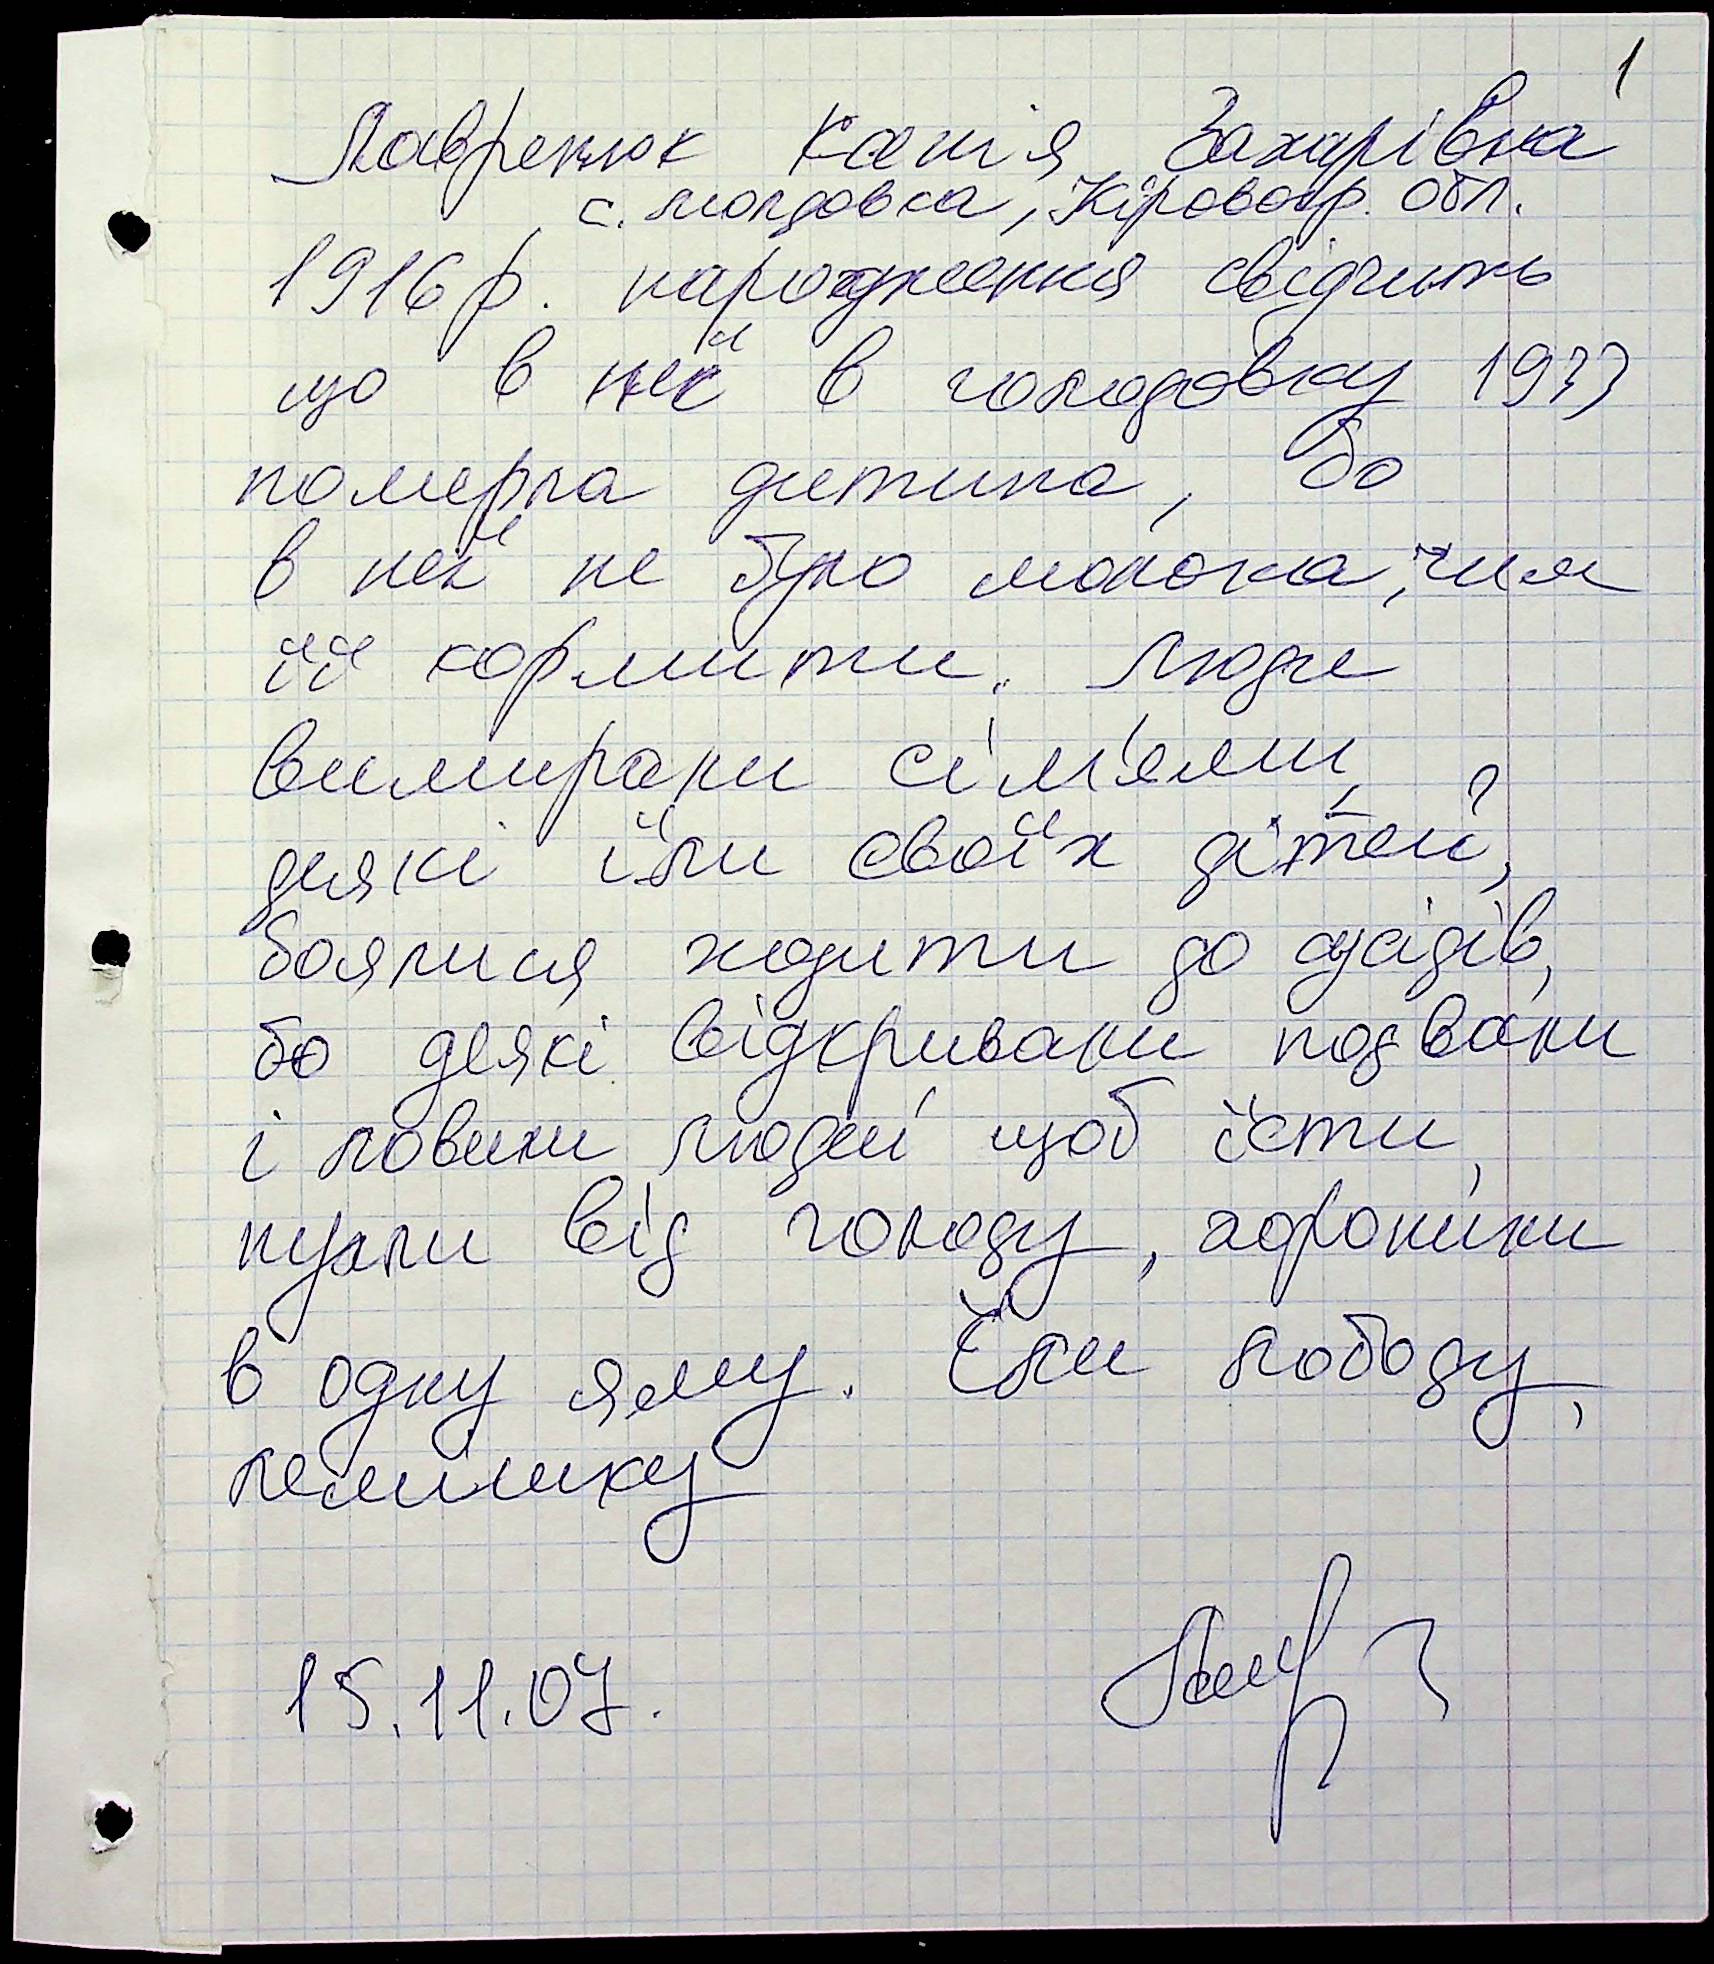 1
Лавренюк Катя Захарівна
с. Молдовка, Кіровогр. обл.
1916 р. народження свідчить
що в неї в голодовку 1933
померла дитина, бо
в неї не було молока, чим
її кормити. Люди
вимирали сім'ями,
деякі їли своїх дітей,
боялися ходити до сусідів,
бо деякі відкривали подвали
і ловили людей щоб їсти,
пухли від голоду, хоронили
в одну яму. Їли лободу,
липицку
15.11.07.